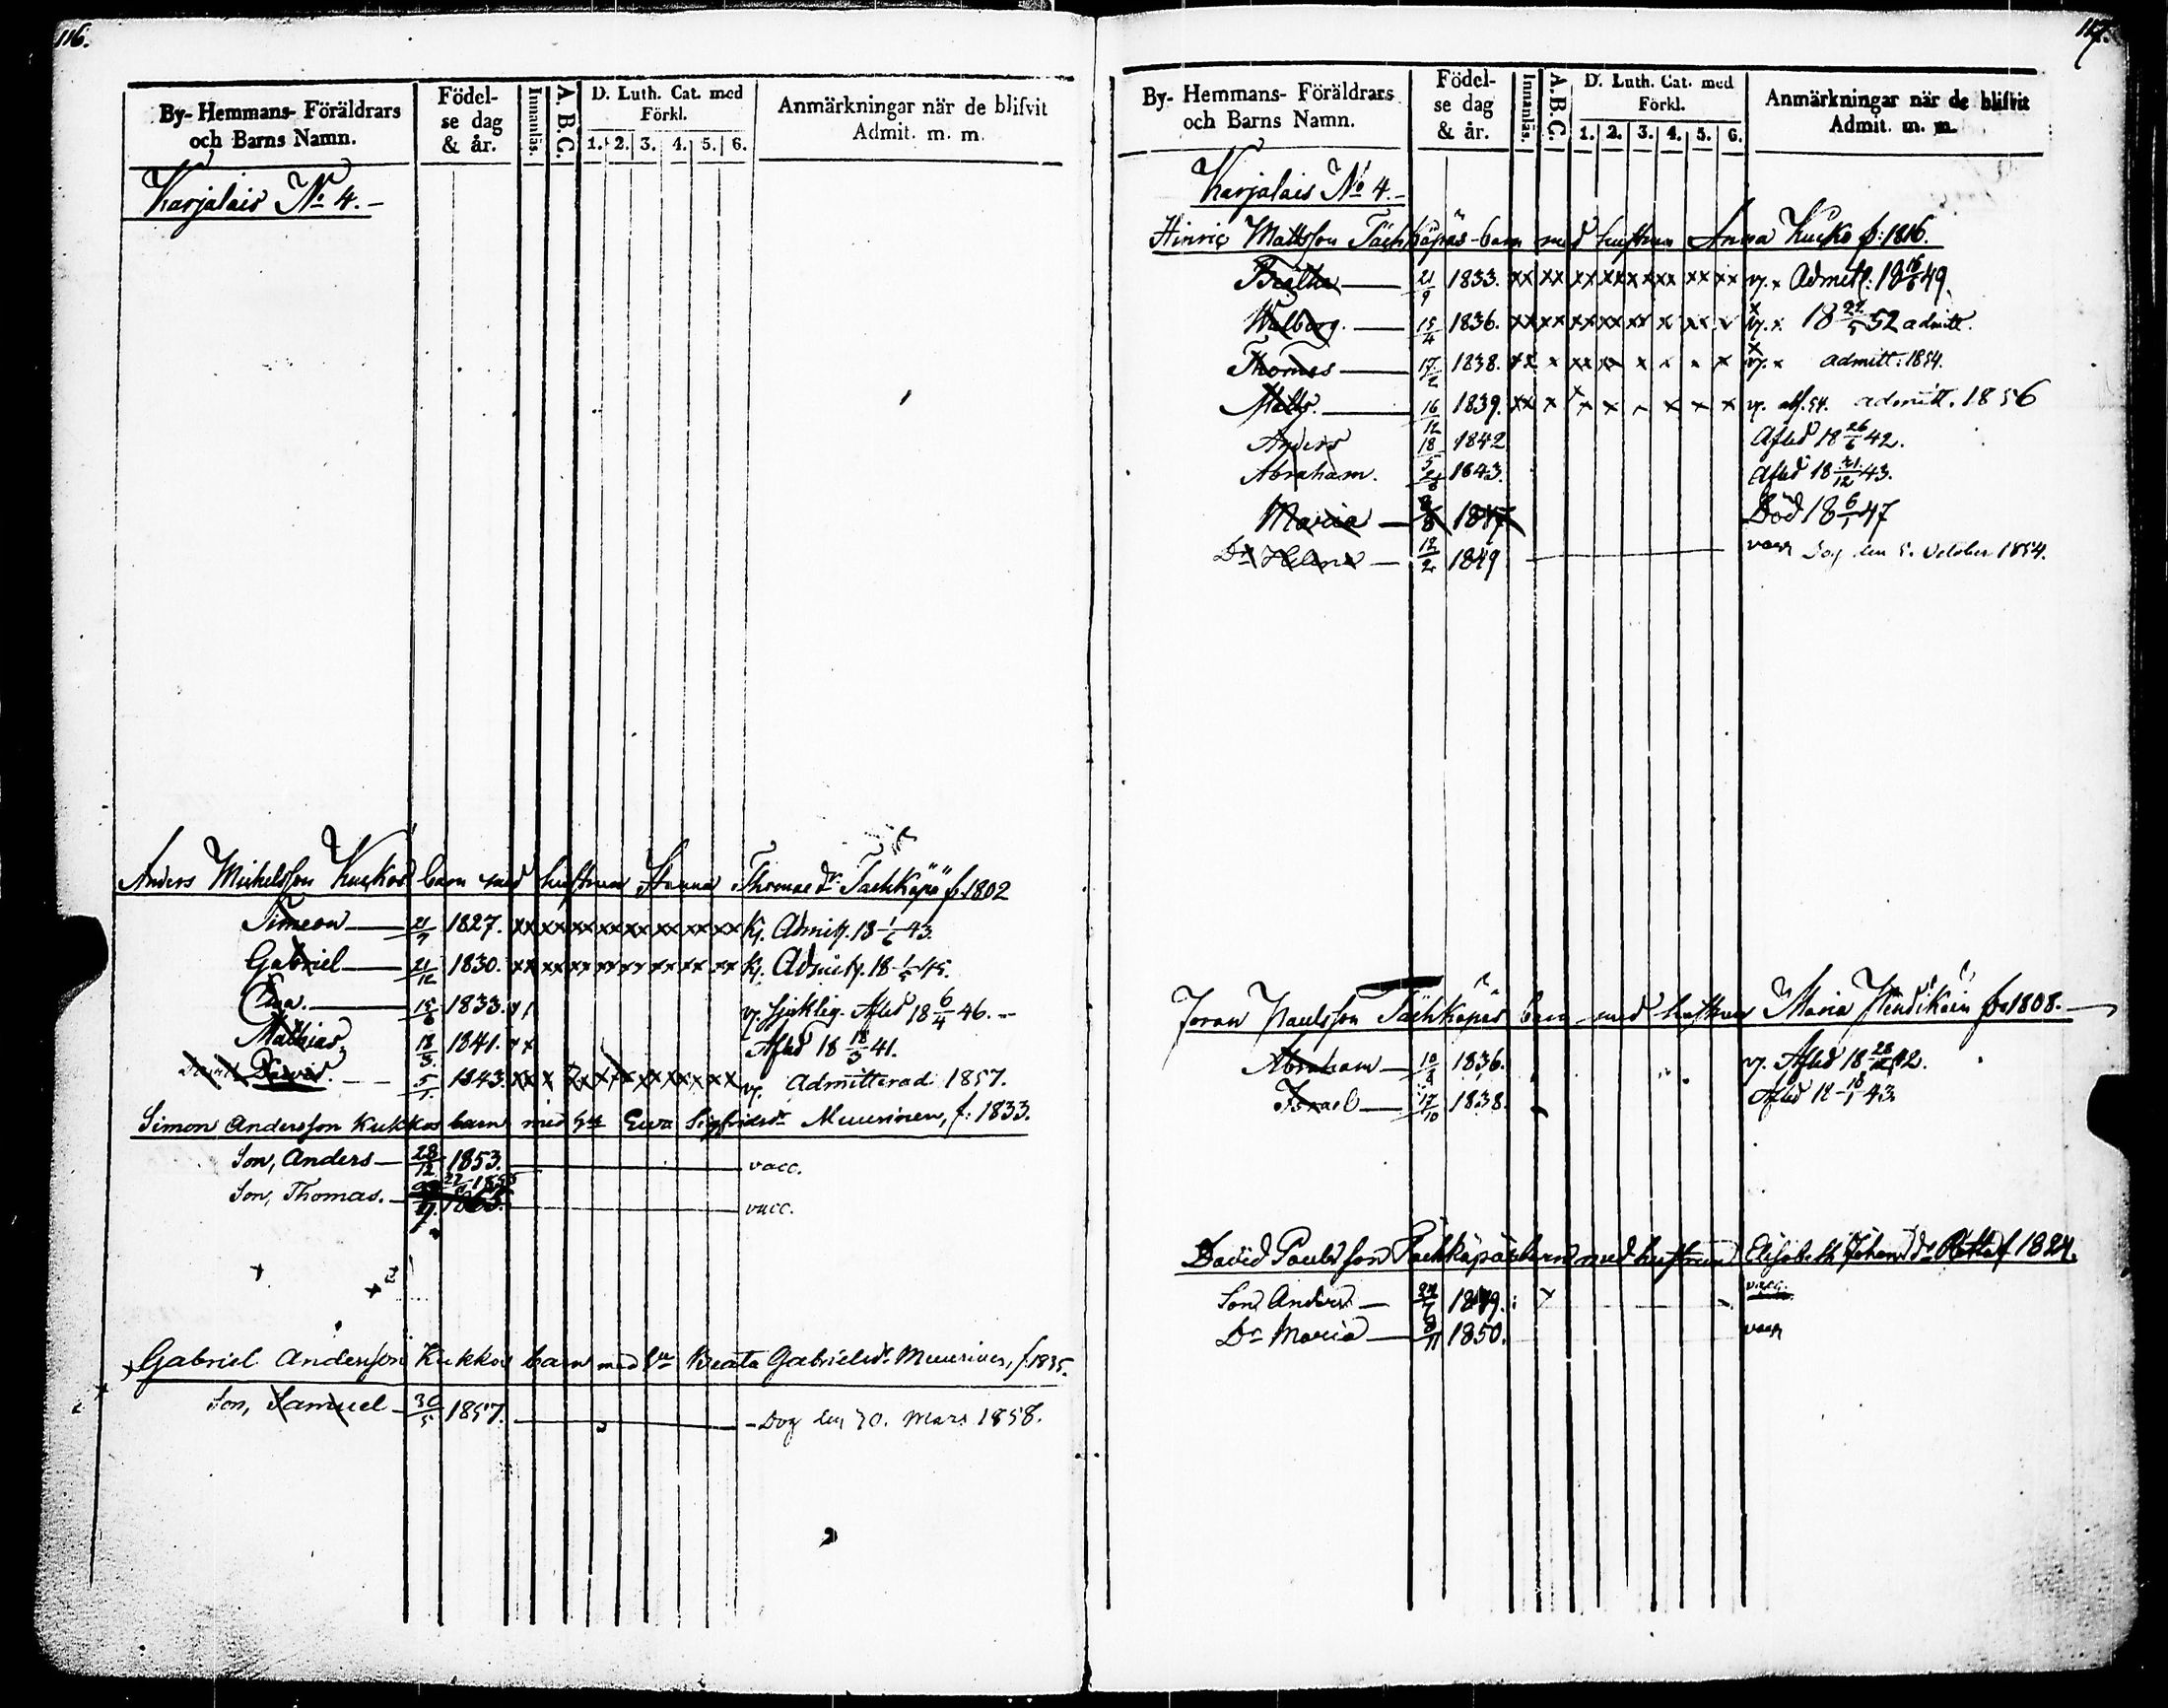 116.
By- Hemmans- Föräldrars och Barns Namn.
Födelse dag & år.
Innanläs.
A. B. C.
D. Luth. Cat. med Förkl.
1. 2. 3. 4. 5. 6.
Anmärkningar när de blifvit Admit. m. m.
Karjalais No 4.
Anders Michelsson Kuckos barn med hustrun Hanna Thomae dr Tachkäpä f. 1802
Simeon 21/9 1827. xx xx xx xx xx xx xx xx Kj. Admitt. 18 1/6 43.
Gabriel 21/12 1830. xx xx xx xx xx xx xx xx Kj. Admitt. 18 1/5 45.
Ewa. 15/6 1833. vj. Sjuklig. Afled 18 6/4 46.
Mathias. 18/3 1841. Afled 18 18/3 41.
David 5/1 1843. vj. Admitterad 1857.
Simon Andersson Kukkos barn med hu Ewa Sigfridsdr Muurinen, f: 1833.
Son, Anders 28/12 1853. vacc.
Son, Thomas. vacc.
Gabriel Andersson Kukkos barn med hu Beata Gabrielsdr Muurinen, f. 1835.
Son, Samuel 30/5 1857. Dog den 20. Mars 1858.
117.
By- Hemmans- Föräldrars och Barns Namn.
Födelse dag & år.
Innanläs.
A. B. C.
D. Luth. Cat. med Förkl.
1. 2. 3. 4. 5. 6.
Anmärkningar när de blifvit Admit. m. m.
Karjalais No 4.
Hinric Mattsson Täckäpäs barn med hustrun Anna Kucko f: 1816.
Beatha 21/9 1833. xx xx xx xx xx xx xx xx vj. x Admitt: 18 16/6 49.
Walborg. 15/4 1836. vj. x. 18 27/5 52 admitt.
Thomas 17/2 1838. vj. x admitt: 1854.
Matts. 16/12 1839. vj. admitt. 1856
Anders 18/5 1842 Afled 18 26/6 42.
Abraham. 1843. Afled 18 21/12 43.
Maria 1847 Död 18 6/1 47
Dr Helena 12/2 1849 vacc Dog den 5. October 1854.
Joran Paulsson Tächkäpäs barn med hustrun Maria Hendikäin f. 1808.
Abraham 10/8 1836. vj. Afled 18 42.
Israel 17/10 1838. Afled 18 18/1 43.
David Paulsson Tachkäpäs barn med hustrun Elisabeth Johans dr f 1824.
Son Anders 1849. x vacc.
Dr Maria 8/11 1850. vacc